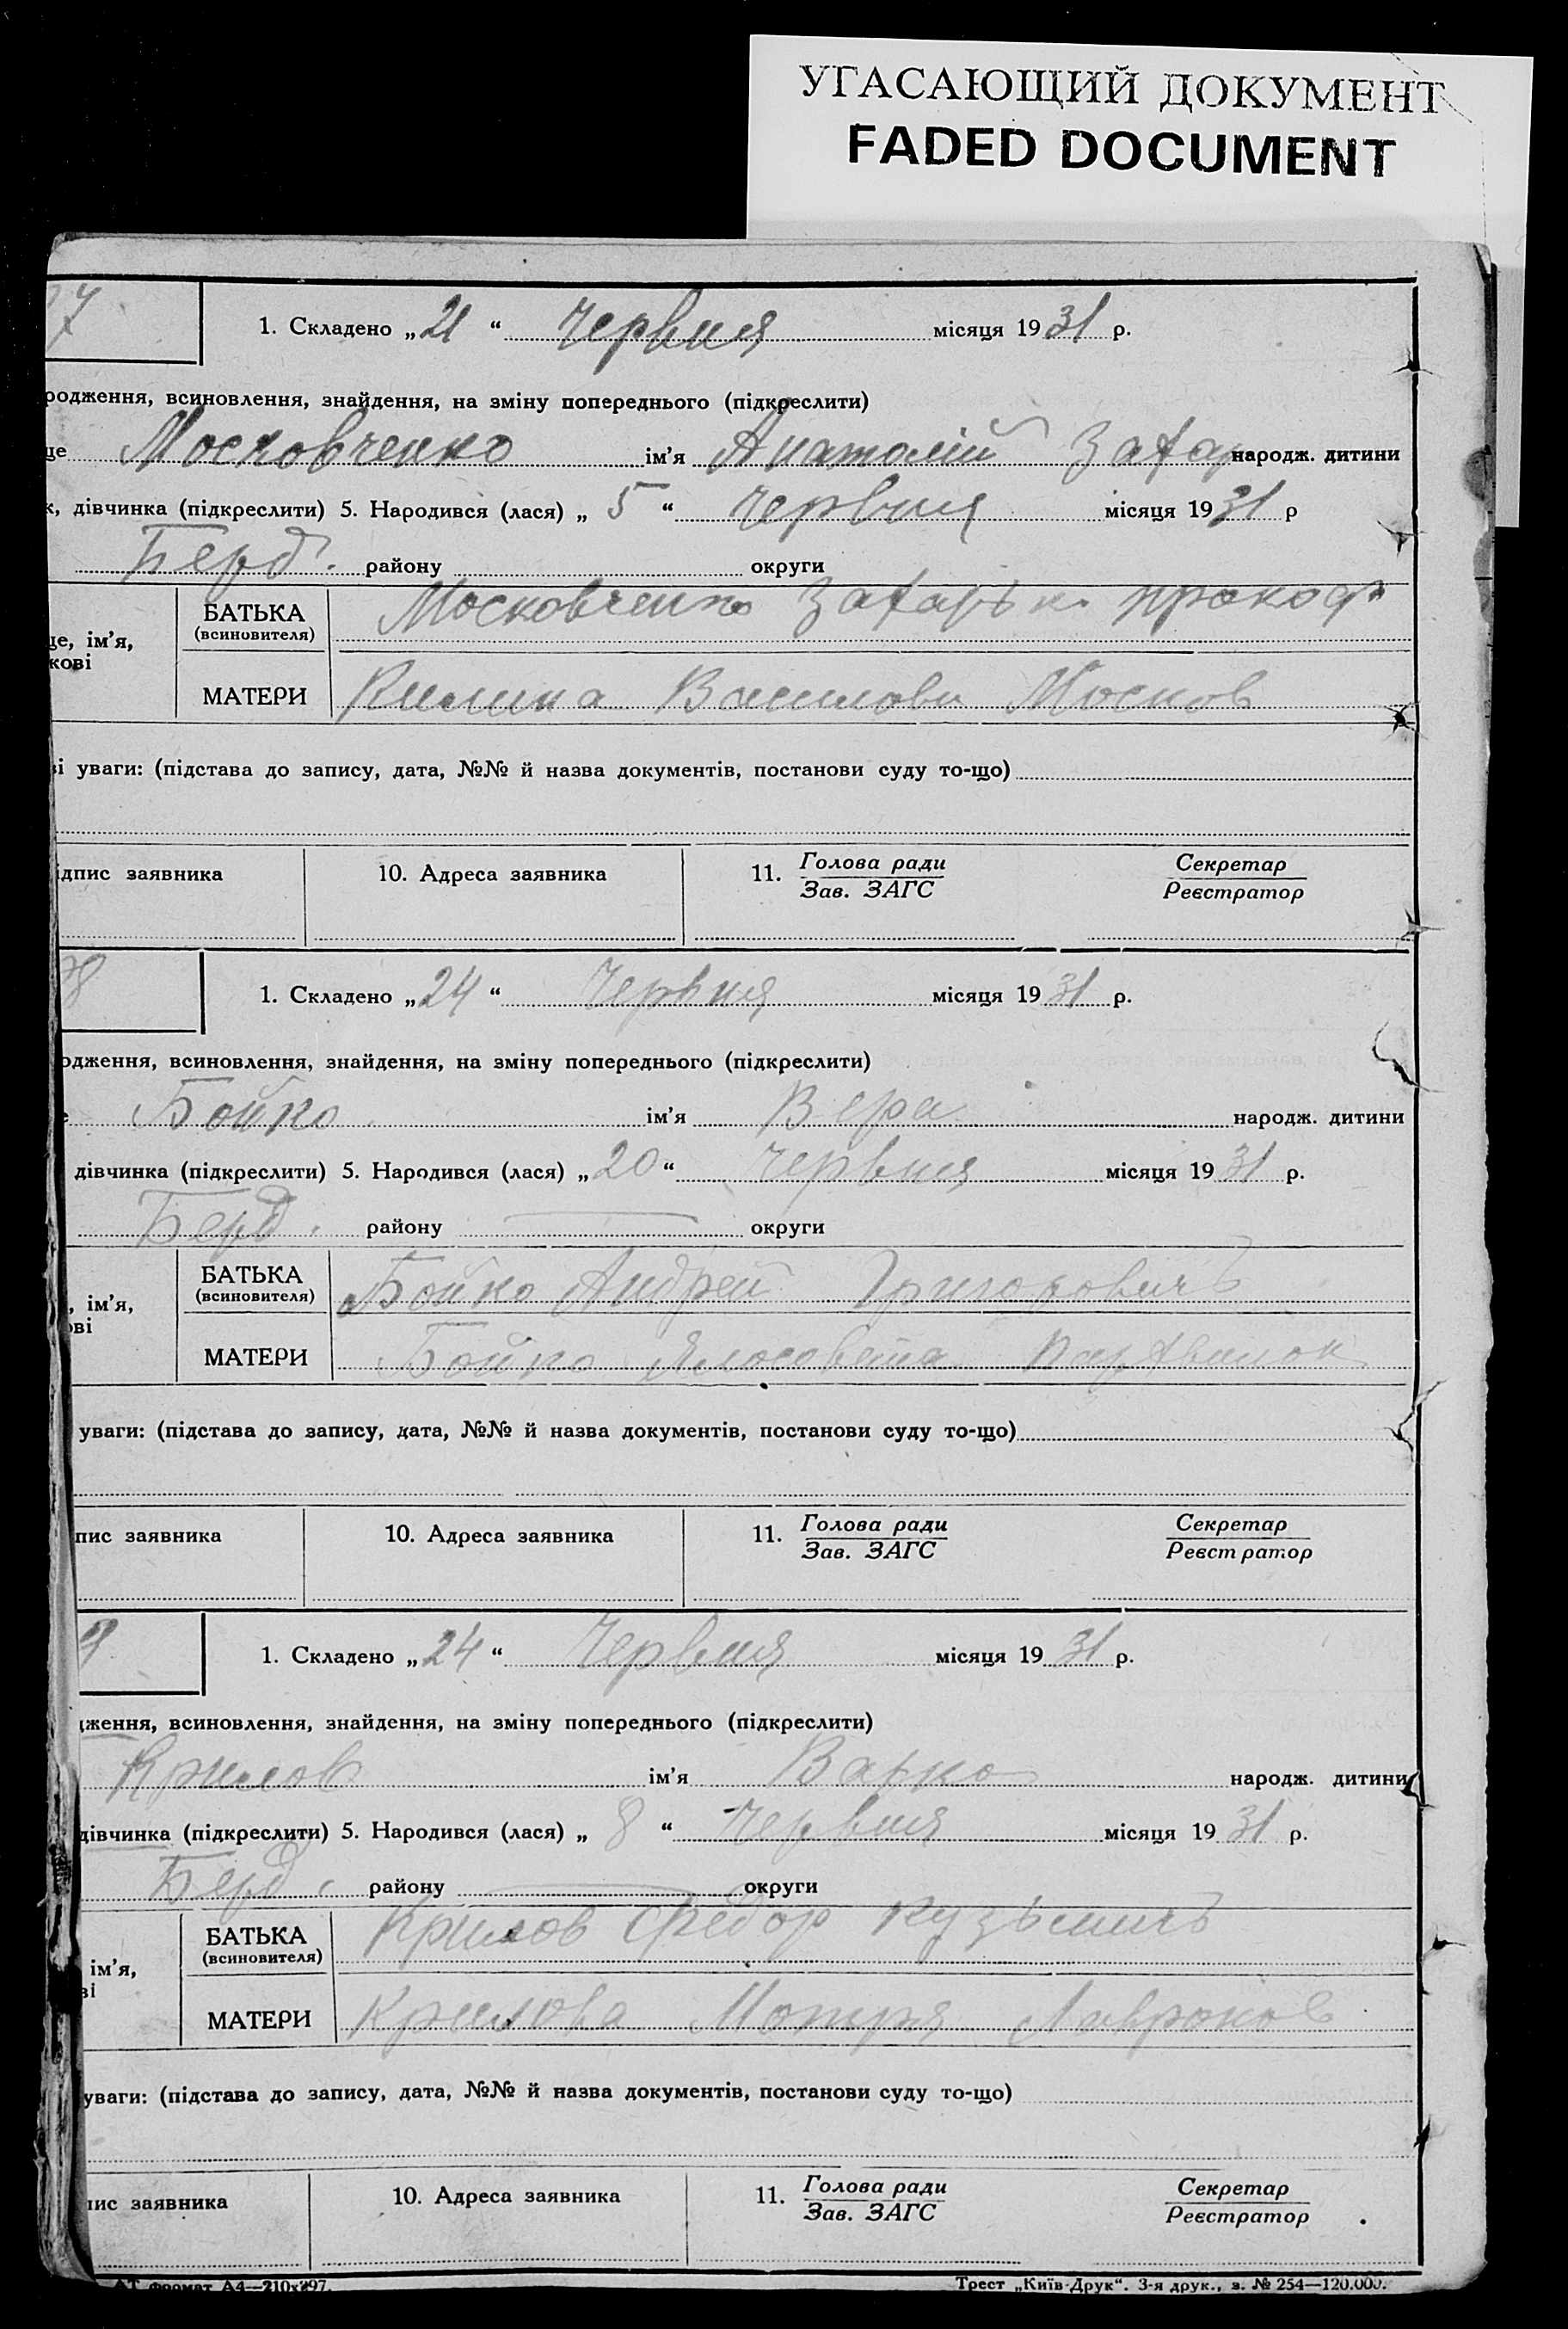 УГАСАЮЩИЙ ДОКУМЕНТ
FADED DOCUMENT
7
1. Складено „21“ Червня місяця 1931 р.
родження, всиновлення, знайдення, на зміну попереднього (підкреслити)
це Московченко ім'я Анатолій Захар народж. дитини
к, дівчинка (підкреслити) 5. Народився (лася) „5“ червня місяця 1931 р
Берд. району округи
це, ім'я,
кові
БАТЬКА
(всиновителя)
Московченко Захарько прокоф
МАТЕРИ Килина Василови Москов
ві уваги: (підстава до запису, дата, №№ й назва документів, постанови суду то-що)
ідпис заявника 10. Адреса заявника 11. Голова ради Секретар
Зав. ЗАГС Реєстратор
8
1. Складено „24“ Червня місяця 1931 р.
одження, всиновлення, знайдення, на зміну попереднього (підкреслити)
е Бойко ім'я Вера народж. дитини
дівчинка (підкреслити) 5. Народився (лася) „20“ червня місяця 1931 р.
Берд. району округи
, ім'я,
ові
БАТЬКА
(всиновителя)
Бойко Андрей Григоровичь
МАТЕРИ Бойко
уваги: (підстава до запису, дата, №№ й назва документів, постанови суду то-що)
пис заявника 10. Адреса заявника 11. Голова ради Секретар
Зав. ЗАГС Реєстратор
9
1. Складено „24“ Червня місяця 1931 р.
дження, всиновлення, знайдення, на зміну попереднього (підкреслити)
Крилов ім'я Варко народж. дитини
дівчинка (підкреслити) 5. Народився (лася) „8“ Червня місяця 1931 р.
Берд. району округи
ім'я,
ві
БАТЬКА
(всиновителя)
Крилов Федор Кузьмичь
МАТЕРИ Крилова Мотря
уваги: (підстава до запису, дата, №№ й назва документів, постанови суду то-що)
пис заявника 10. Адреса заявника 11. Голова ради Секретар
Зав. ЗАГС Реєстратор
АТ формат А4—210х297.
Трест „Київ-Друк“. 3-я друк., з. № 254—120.000.